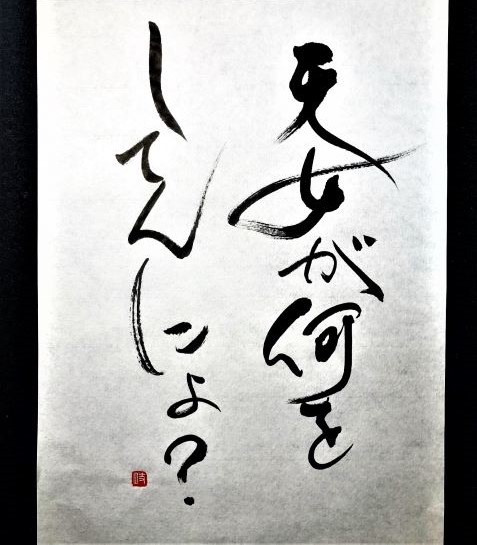 天女が何を
してんにょ?